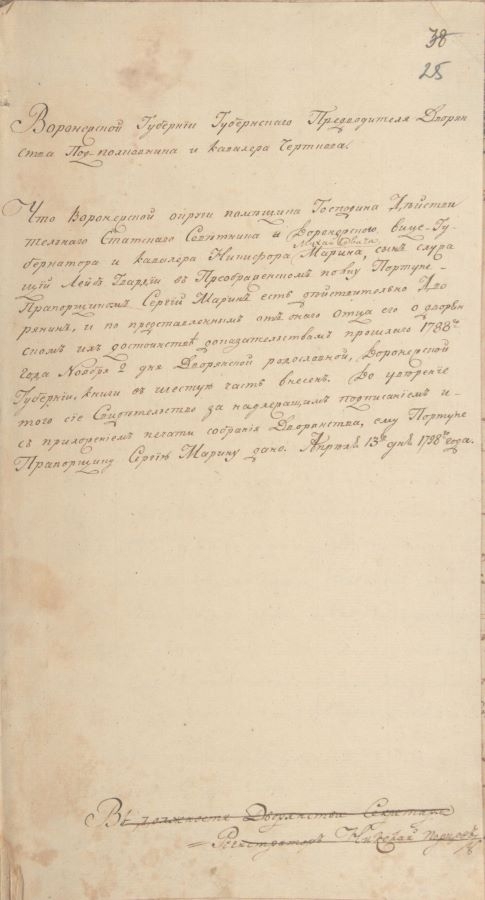 38
25
Воронежской Губерніи Губернскаго Предводителя Дворян
ства Подполковника и кавалера Черткова.
Что Воронежской округи помѣщика Господина Дѣйстви
тельнаго Статскаго Совѣтника и Воронежскаго вице-Гу-
Михайловича
бернатора и кавалера Никифора Марина, сынъ служа
щій Лейбъ Гвардіи въ Преображенскомъ полку Портупе-
Прапорщикомъ Сергій Маринъ есть дѣйствительно Дво
рянинъ, и по представленнымъ отъ онаго отца его о дворян
скомъ ихъ достоинствѣ доказательствамъ прошлаго 1788го
года Ноября 2 дня Дворянской родословной, Воронежской
Губерніи, книги въ шестую часть внесенъ. Во увѣреніе
того сіе Свидѣтельство за надлежащимъ подписаніемъ и
съ приложеніемъ печати собранія Дворянства, ему Портупе
Прапорщику Сергію Марину дано. Апрѣля 13го дня 1798го года.
Въ должности Дворянства Секретаря
Регистраторъ